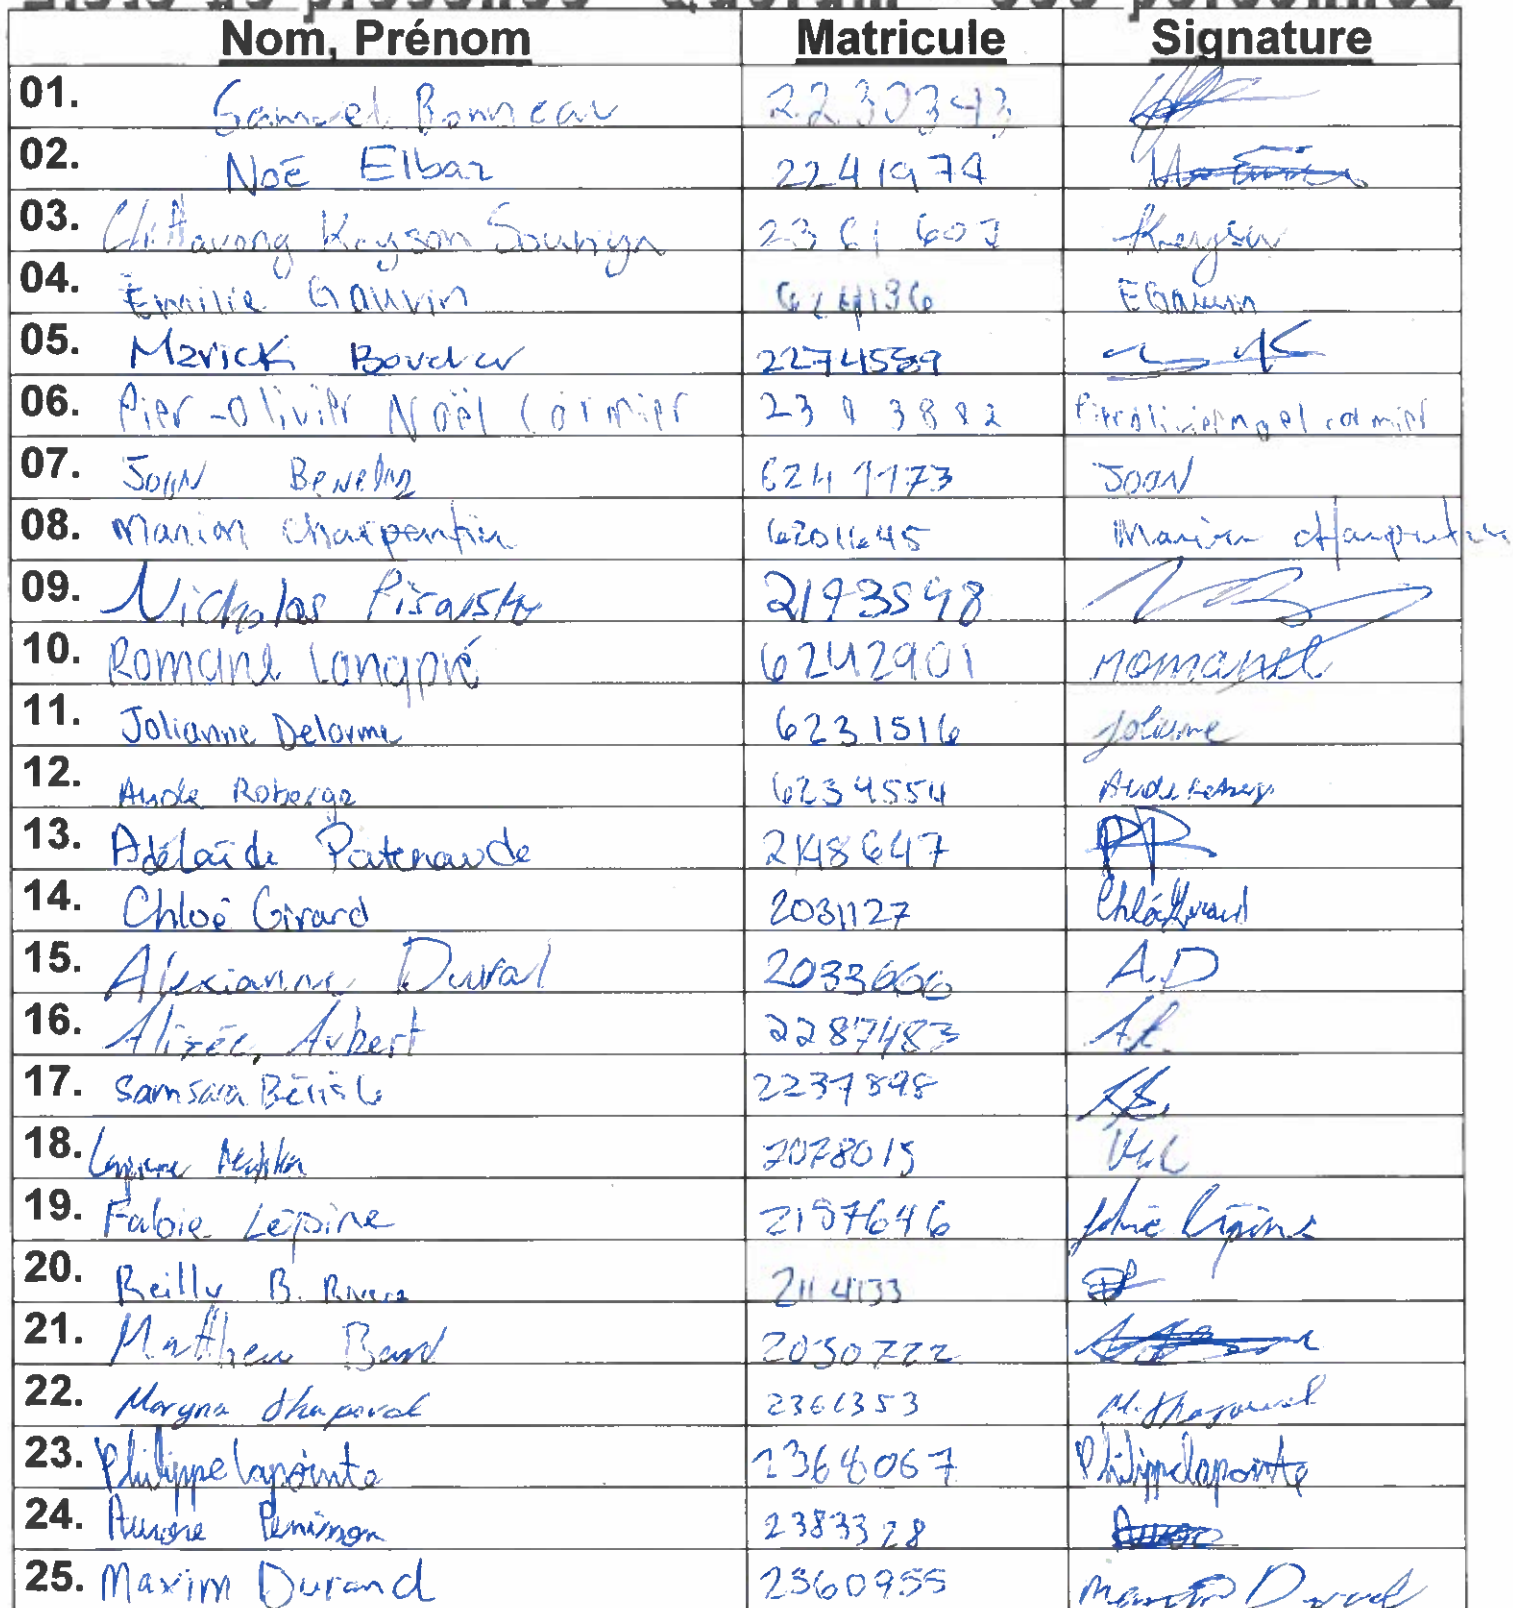 Liste de présence - Quorum - personnes
Nom, Prénom Matricule Signature
01. Samuel Bonneau 2230343
02. Noë Elbaz 2241974
03. Keyson 2361607 Keyson
04. Emilie Gauvin 6244136 EGauvin
05. Marick 2274589
06. Pier-Olivier Noël Cormier 23 3882 Pierolivier noel cormier
07. Joan 6241173 JOAN
08. Marion Charpentier 6201645 Marion Charpentier
09. Nicholas 2193598
10. Romane Longpré 6242901 Romane L
11. Jolianne Delorme 6231516 Jolianne
12. Aude Roberge 6234554 Aude Roberge
13. Adélaïde Patenaude 2148647 AP
14. Chloé Girard 2031127 Chloé Girard
15. Alexianne Duval 2033666 A.D
16. Alizée, Aubert 2287483
17. Samsara Bélisle 2237898 S.B.
18. 2078015
19. Fabie Lépine 2197646 Fabie Lépine
20. Reilly B. Rivera 2114133
21. Matthew 2030722
22. Maryna 2361353 M.
23. Philippe Lapointe 2368067 Philippe Lapointe
24. Aurore 2383328
25. Maxim Durand 2360955 Maxim Durand